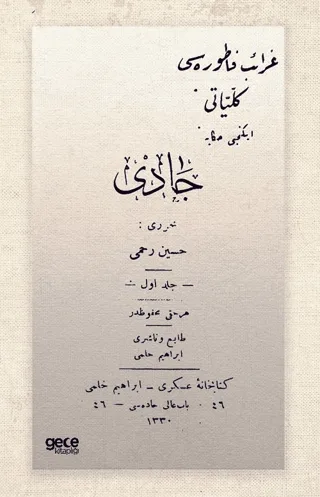 غرائب فاطوره‌سی
كلیاتی
ایكنجی حكایه
جادی
محرری :
حسین رحمی
— جلد اول —
هر حقی محفوظدر
طابع و ناشری
ابراهیم حلمی
كتابخانهٔ عسكری — ابراهیم حلمی
٤٦ باب عالی جاده‌سی — ٤٦
١٣٣٠
gece
kitaplığı